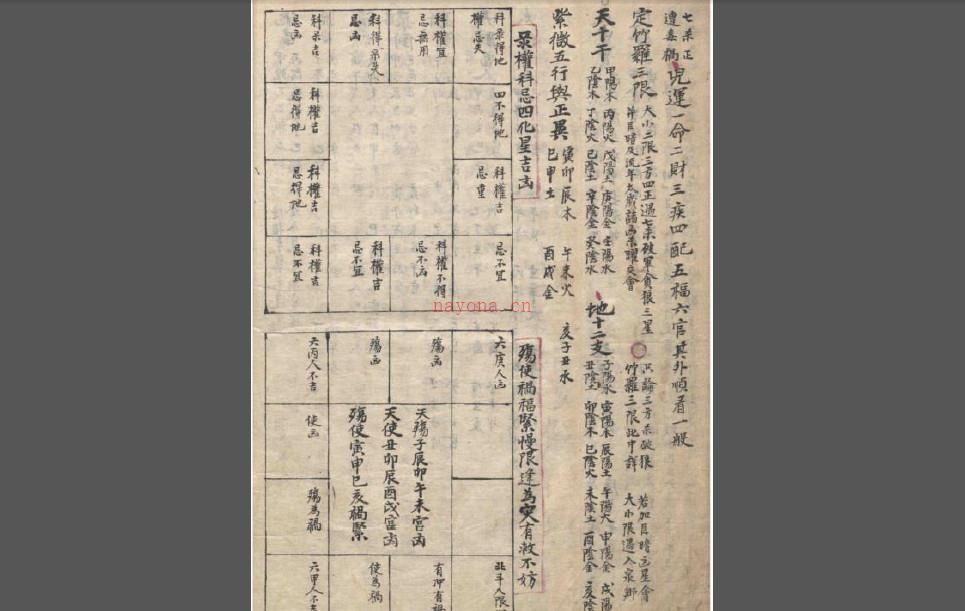 七杀正
遭其禍
児運一命二財三疾四配五福六官其外順看一般
定竹羅三限
大小二限三方四正遇七杀破軍貪狼三星
竹羅三限此中詳
若加巨暗凶星會
大小限遇入衰鄉
天十干
甲陽木 丙陽火 戊陽土 庚陽金 壬陽水
乙陰木 丁陰火 己陰土 辛陰金 癸陰水
地十二支
子陽水 寅陽木 辰陽土 午陽火 申陽金 戌陽
丑陰土 卯陰木 巳陰火 未陰土 酉陰金 亥陰
紫微五行與正異
寅卯辰木 午未火 亥子丑水
巳申土 酉戌金
祿權科忌四化星吉凶
科祿得地
權忌失
四不得地
科權吉
忌重
忌不宜
科權宜
忌無用
科權不得
忌不凶
科得祿失
忌凶
科權吉
忌不宜
科祿吉
忌凶
科權吉
忌得地
科權吉
忌得地
科權吉
忌不宜
殤使禍福緊慢限逢為灾有救不妨
六庚人凶
殤凶
殤凶
六丙人不吉
使凶
殤為禍
六甲人不吉
使為禍
有沖有
北斗人限
天殤子辰卯午未宮凶
天使丑卯辰酉戌宮凶
殤使寅申巳亥禍緊
nayona.cn